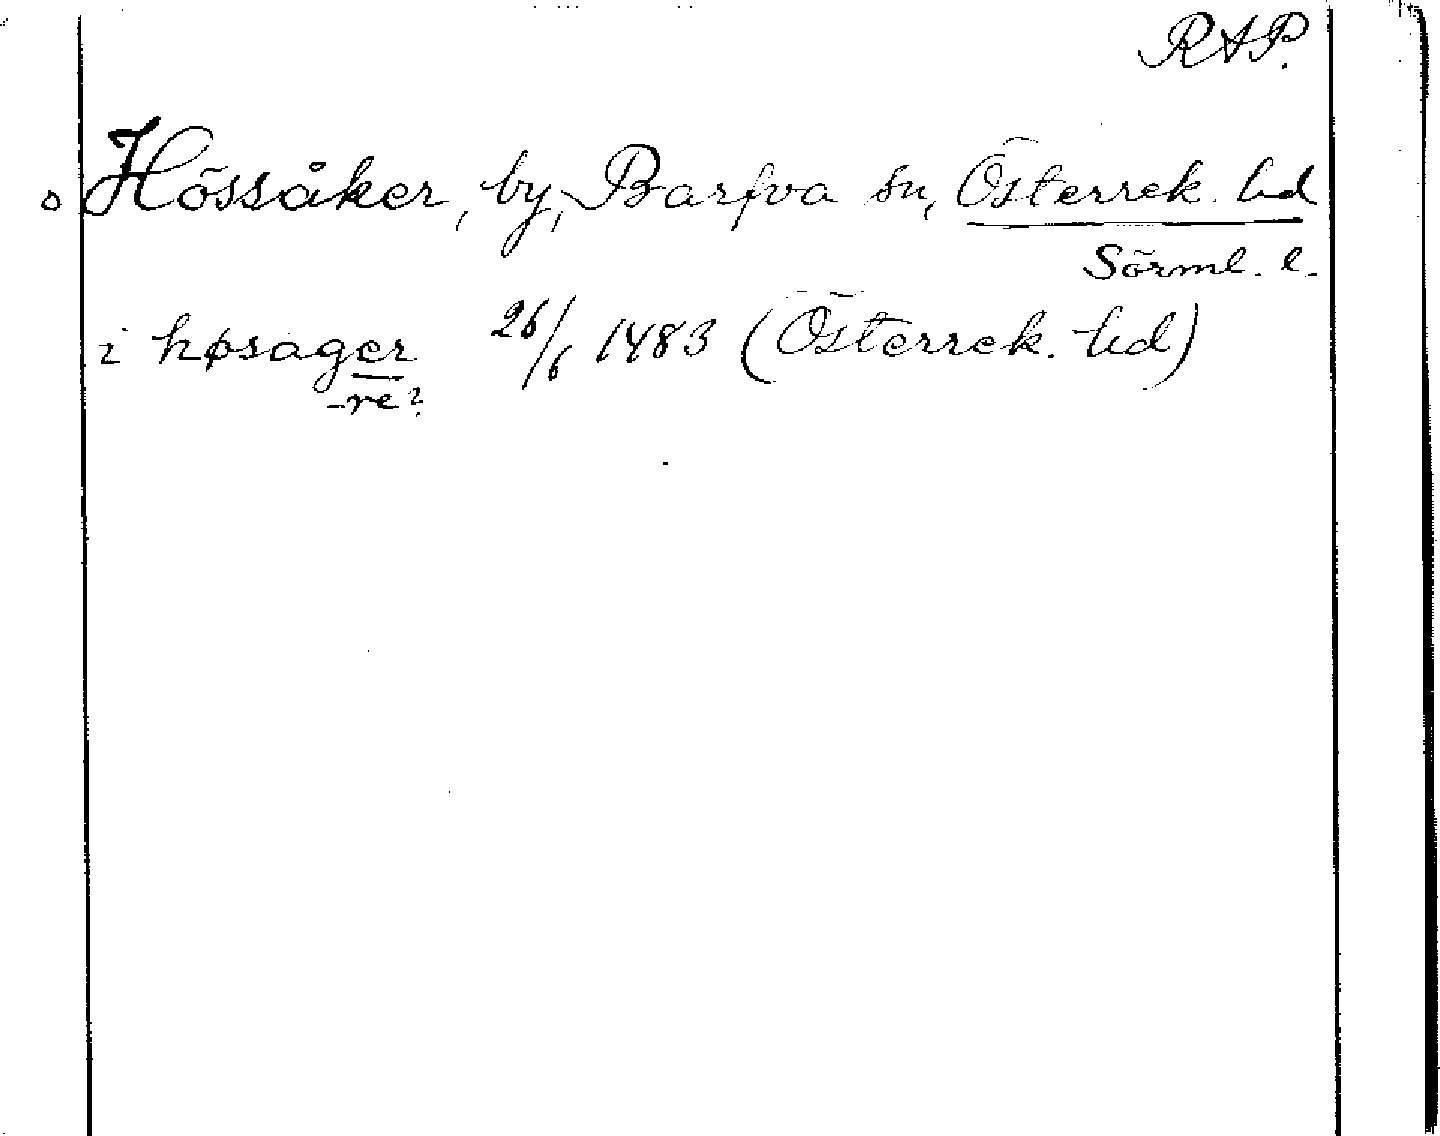 RAP.
o Hössåker, by, Barfva sn, Österrek. hd
Sörml. l.
i høsager 26/6 1483 (Österrek. hd)
-re?